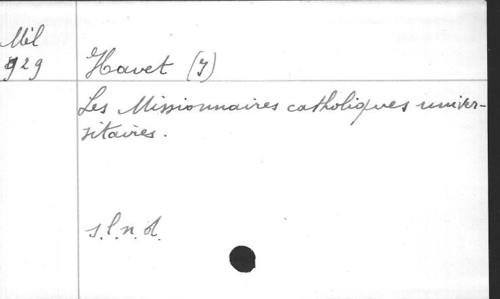 Mil
929
Havet (J)
Les Missionnaires catholiques univer-
sitaires.
s.l.n.d.